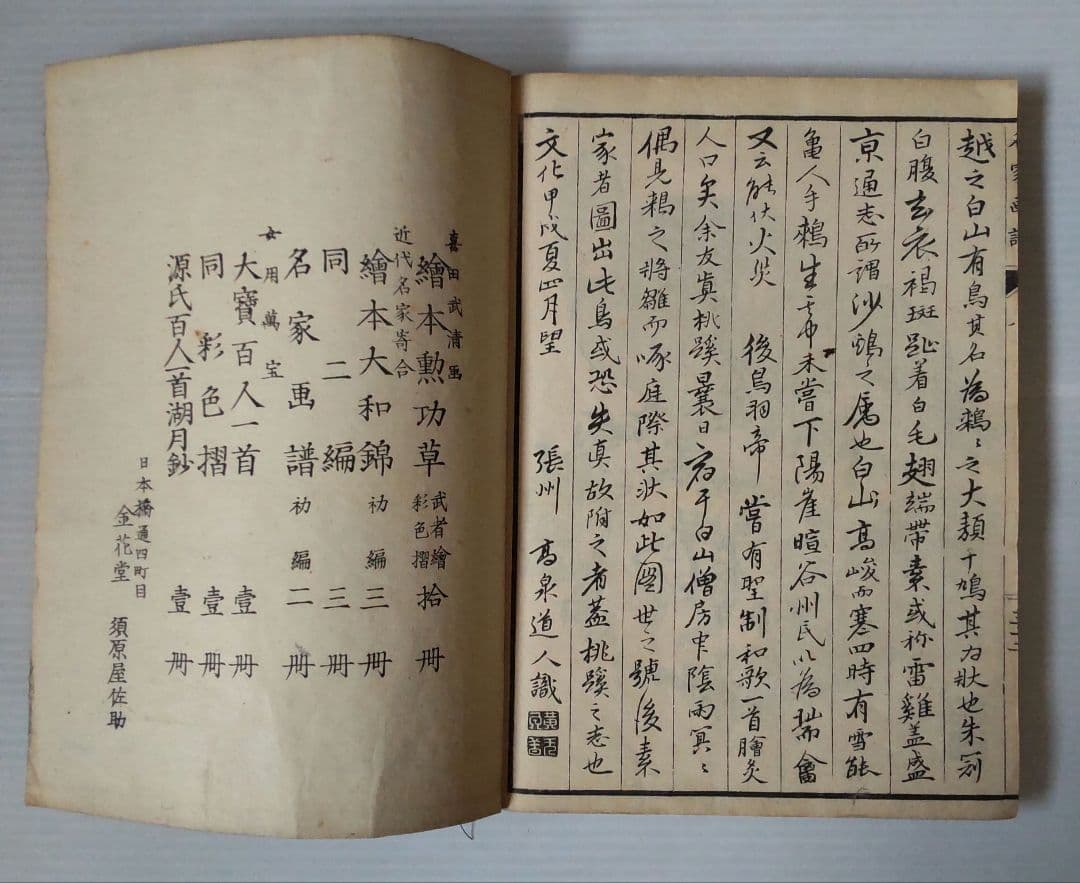 越之白山有鳥其名為鶆々之大類于鳩其為狀也朱冠
白腹玄衣褐斑趾着白毛翅端帶素或称雷雞盖盛
京通志所謂沙鷄之属也白山高峻而塞四時有雪能
亀人手鶆生帝未嘗下陽崖暄谷州民以為瑞禽
又云能伏火災　後鳥羽帝　嘗有聖制和歌一首膾炙
人口矣余友真桃蹊曩日宿于白山僧房中陰雨冥々
偶見鶆之將雛而啄庭際其狀如此圖世之號後素
家者圖出此鳥或恐失真故附之者蓋桃蹊之志也
文化甲戌夏四月望　張州　高泉道人識
喜田武清画
繪本勲功草 武者繪 彩色摺 拾冊
近代名家寄合
繪本大和錦 初編 三冊
同二編 三冊
名家画譜 初編 二冊
女用萬宝
大寶百人一首 壹冊
同彩色摺 壹冊
源氏百人一首湖月鈔 壹冊
日本橋通四町目
金花堂 須原屋佐助